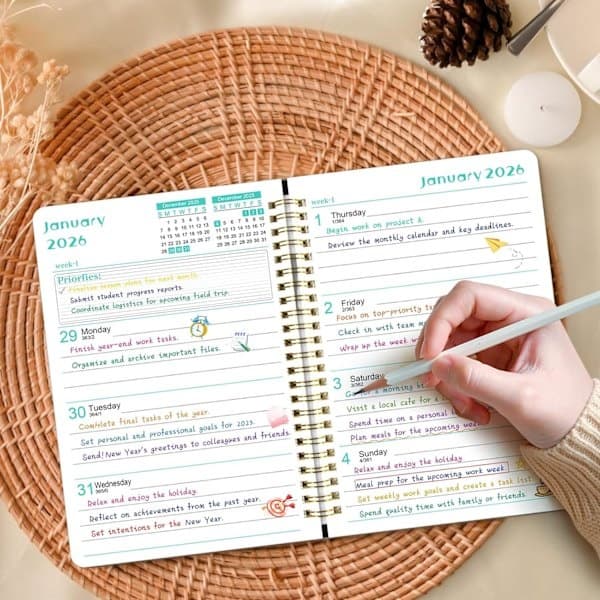 January
2026
December 2025
S M T W T F S
1 2 3 4 5 6
7 8 9 10 11 12 13
14 15 16 17 18 19 20
21 22 23 24 25 26 27
28 29 30 31
December 2025
S M T W T F S
week-1
Priorfies!
Finalize lesson plans for next month.
Submit student progress reports.
Coordinate logistics for upcoming field trip.
29 Monday
363/2
Finish year-end work tasks.
Organize and archive important files.
30 Tuesday
364/1
Complete final tasks of the year.
Set personal and professional goals for 2025.
Send! New Year's greetings to colleagues and friends.
31 Wednesday
365/0
Relax and enjoy the holiday.
Reflect on achievements from the past year.
Set intentions for the New Year.
January 2026
week-1
1 Thursday
1/364
Begin work on project A.
Review the monthly calendar and key deadlines.
2 Friday
2/363
Focus on top-priority
Check in with team
Wrap up the week
3 Saturday
3/362
Go for a morning
Visit a local cafe for a
Spend time on a personal
Plan meals for the upcoming week.
4 Sunday
4/361
Relax and enjoy the holiday.
Meal prep for the upcoming work week.
Set weekly work goals and create a task list.
Spend quality time with family or friends.